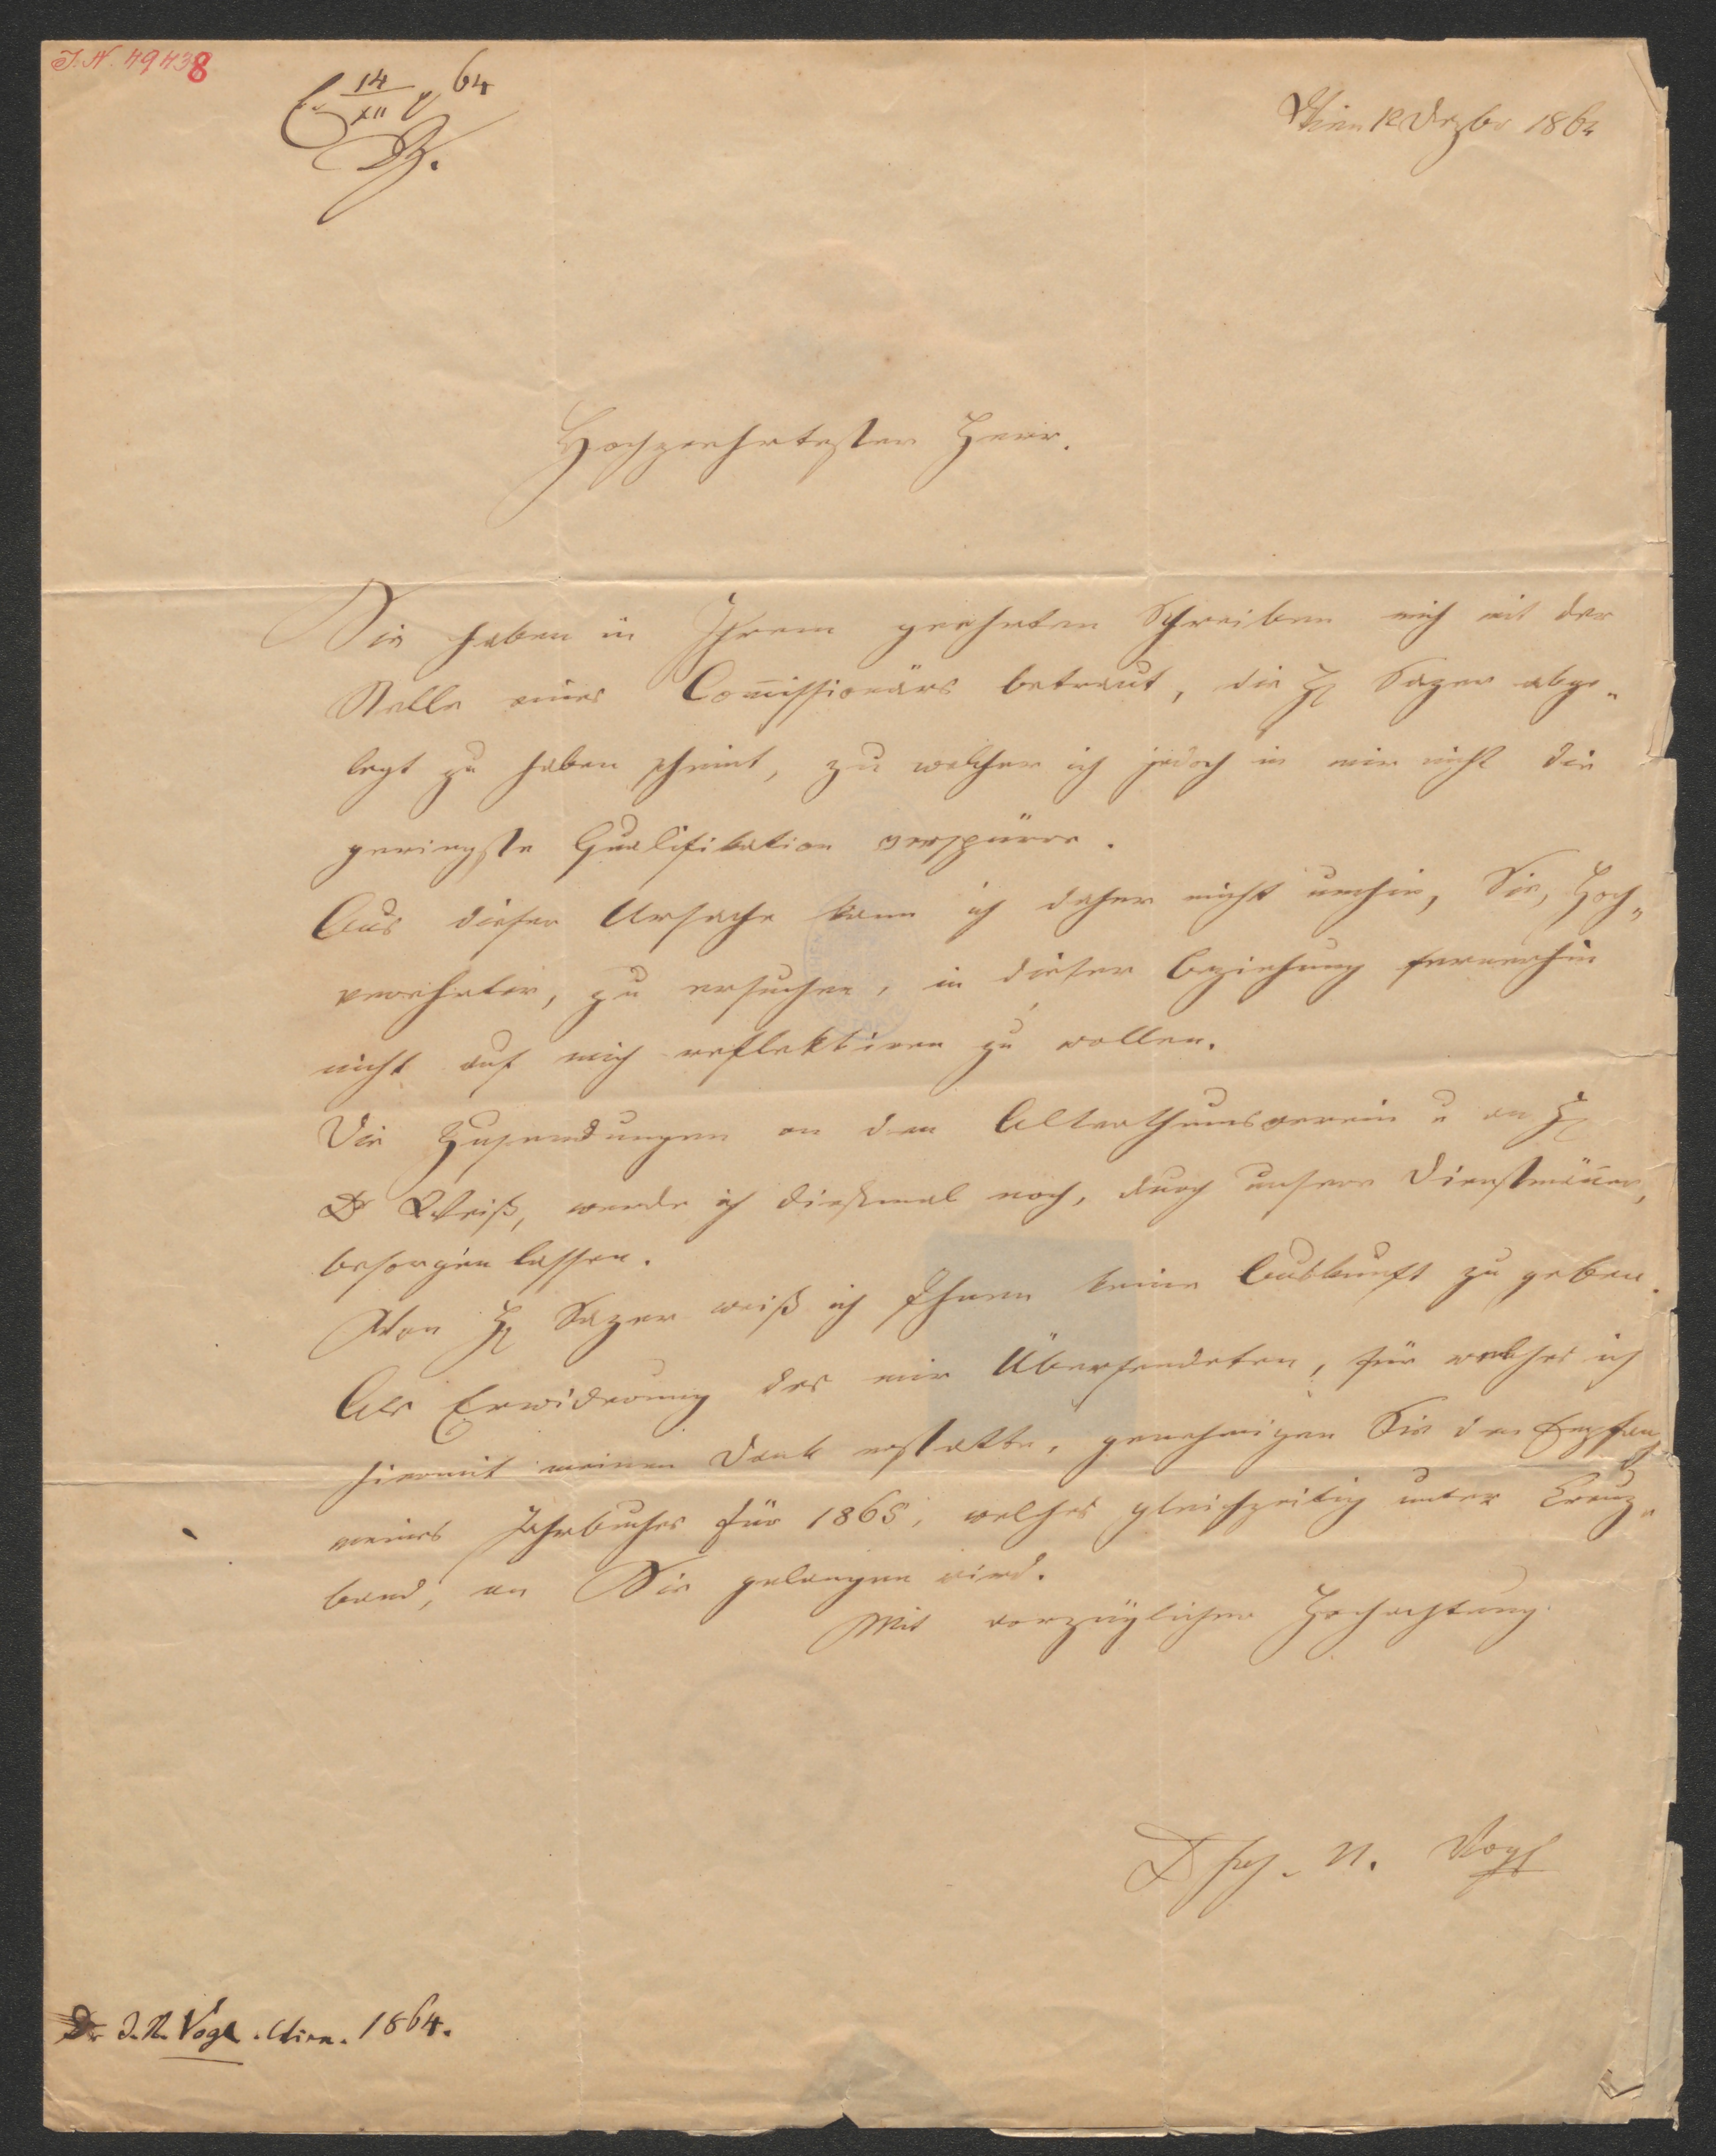 J.N. 49438
14/XII 64
Wien 12 Dezbr 1864
Hochgeehrtester Herr.
Sie haben in Ihrem geehrten Schreiben mich mit der
Stelle eines Com̄issionärs betraut, die H Sazer abge„
legt zu haben scheint, zu welcher ich jedoch in mir nicht die
geringste Qualifikation verspüre.
Aus dieser Ursache kann ich daher nicht umhin, Sie, Hoch„
verehrter, zu ersuchen, in dieser Beziehung fernerhin
nicht auf mich reflektiren zu wollen.
Die Zusendungen an den Alterthumsverein u an H
Dr Weiß, werde ich dießmal noch, durch unsere Dienstmän̄er,
besorgen lassen.
Von H Sazer weiß ich Ihnen keine Auskunft zu geben.
Als Erwiderung des mir Übersendeten, für welches ich
hiermit meinen Dank erstatte, genehmigen Sie den Empfang
meines Jahrbuches für 1865, welches gleichzeitig unter Kreuz„
band, an Sie gelangen wird.
Mit vorzüglicher Hochachtung
D Joh. N. Vogl
Dr J. N. Vogl. Wien. 1864.